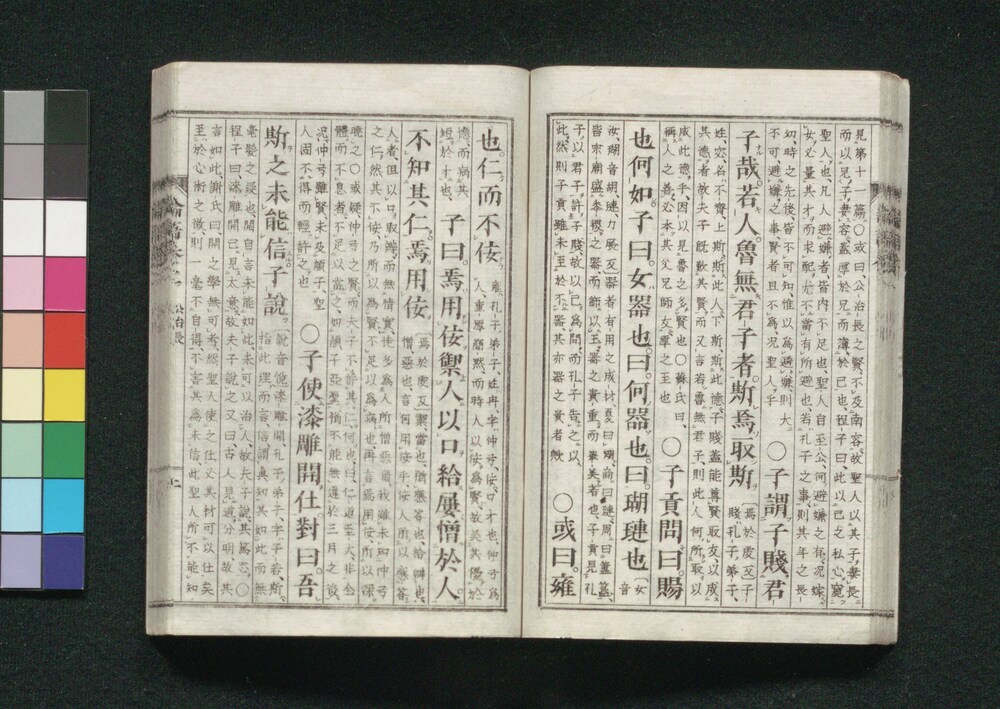 見第十一篇〇或曰公冶長之賢不及南容故聖人以其子妻長
而以兄子妻容蓋厚於兄而薄於己也程子曰此以己之私心窺
聖人也凡人避嫌者皆內不足也聖人自至公何避嫌之有況嫁
女必量其才而求配尤不當有所避也若孔子之事則其年之長
幼時之先後皆不可知惟以為避嫌則大
不可避嫌之事賢者且不為況聖人乎
〇子謂子賤君
子哉若人魯無君子者斯焉取斯
焉於虔反〇子
賤孔子弟子
姓宓名不齊上斯斯此人下斯斯此德子賤蓋能尊賢取友以成
其德者故夫子既歎其賢而又言若魯無君子則此人何所取以
成此德乎因以見魯之多賢也〇蘇氏曰
稱人之善必本其父兄師友厚之至也
〇子貢問曰賜
也何如子曰女器也曰何器也曰瑚璉也
女音
汝瑚音胡璉力展反〇器者有用之成材夏曰瑚商曰璉周曰簠簋
皆宗廟盛黍稷之器而飾以玉器之貴重而華美者也子貢見孔
子以君子許子賤故以己為問而孔子告之以
此然則子貢雖未至於不器其亦器之貴者歟
〇或曰雍
也仁而不佞
雍孔子弟子姓冉字仲弓佞口才也仲弓為
人重厚簡默而時人以佞為賢故美其優於
德而病其
短於才也
子曰焉用佞禦人以口給屢憎於人
不知其仁焉用佞
焉於虔反〇禦當也猶應答也給辨也
憎惡也言何用佞乎佞人所以應答
人者但以口取辨而無情實徒多為人所憎惡爾我雖未知仲弓
之仁然其不佞乃所以為賢不足以為病也再言焉用佞所以深
曉之〇或疑仲弓之賢而夫子不許其仁何也曰仁道至大非全
體而不息者不足以當之如顏子亞聖猶不能無違於三月之後
況仲弓雖賢未及顏子聖
人固不得而輕許之
〇子使漆雕開仕對曰吾
斯之未能信子說
說音悅漆雕開孔子弟子字子若斯
指此理而言信謂真知其如此而無
毫髮之疑也開自言未能如此未可以治人故夫子說其篤志〇
程子曰漆雕開已見大意故夫子說之又曰古人見道分明故其
言如此謝氏曰開之學無可考然聖人使之仕必其材可以仕矣
至於心術之微則一毫不自得不害其為未信此聖人所不能知
公冶長